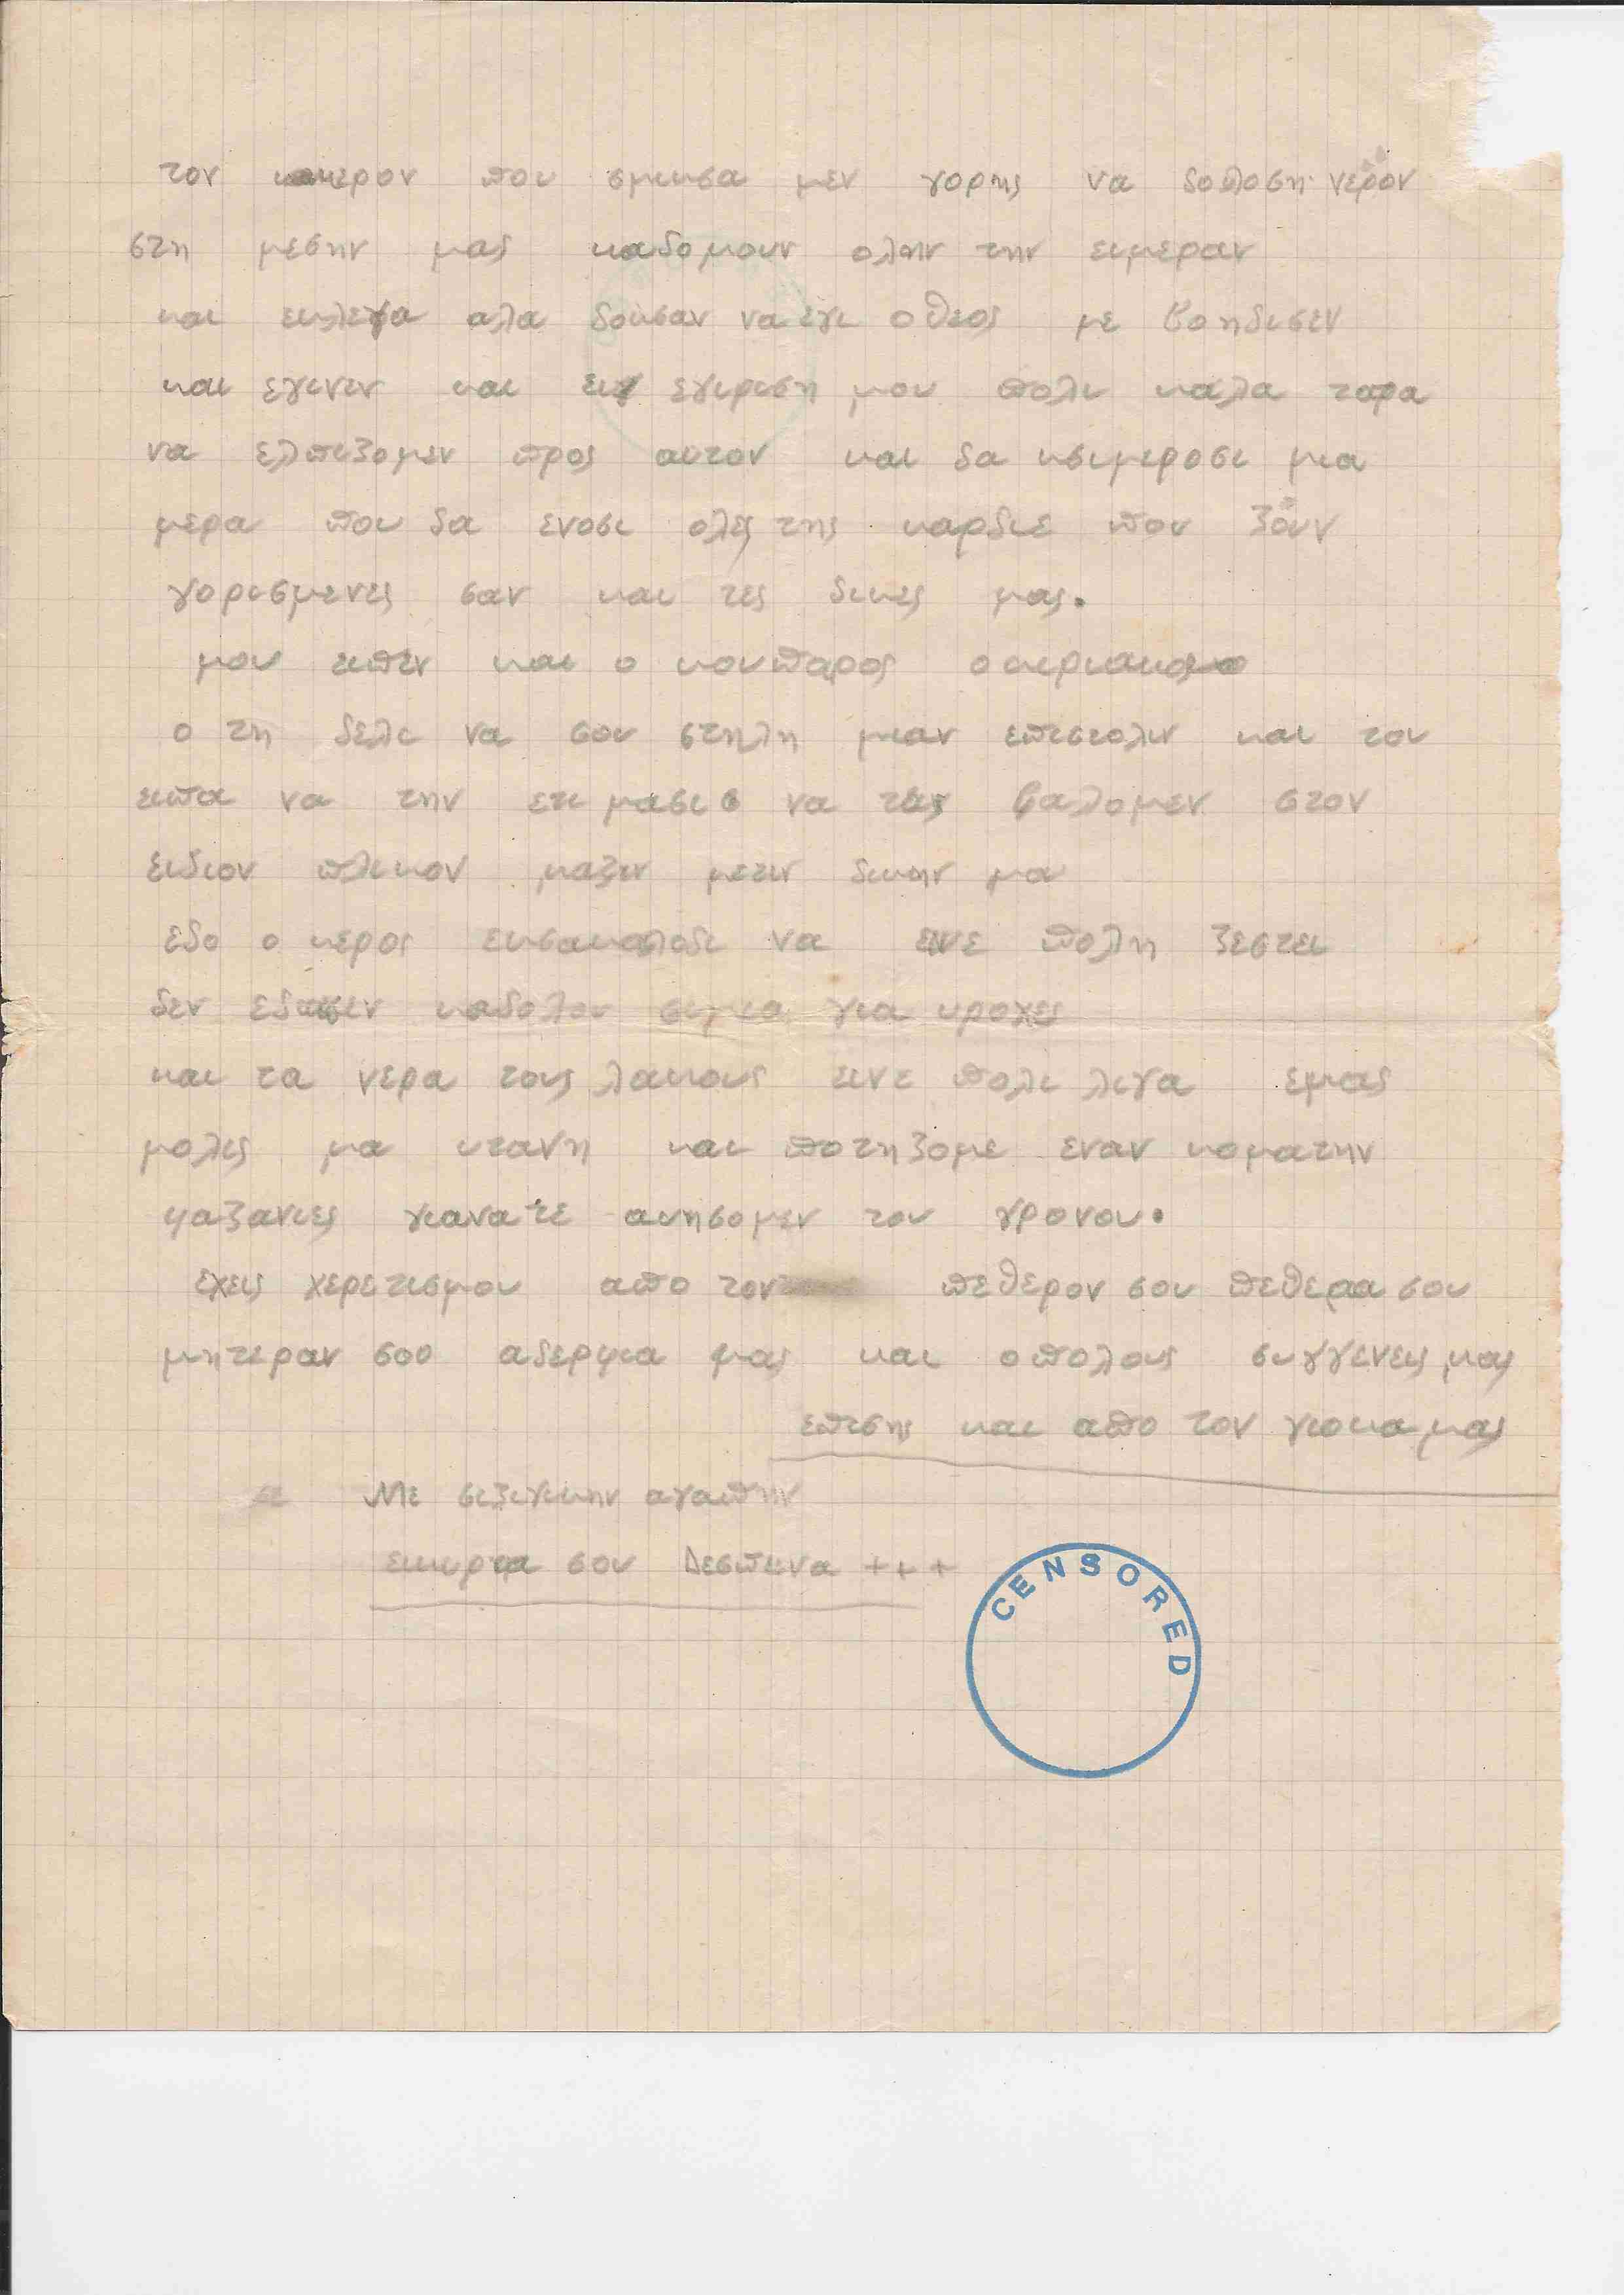 τον κερον που σμικσα μεν γορης να δοπλοση νερον
στη μεσην μας καδομουν ολην την ειμεραν
και εκλεγα αλα δοκσαν να εγι ο θεος με βοηδισεν
και εγινεν και ειγ εγιριση μου πολι καλα τορα
να ελπιζομεν προς αυτον και δα κσιμεροσι μια
μερα που δα ενοσι ολες της καρδιε που ζουν
γορισμενες σαν και τες δικες μας.
μου ειπεν και ο κουπαρος ο κιριακος
ο τη δελι να σου στηλη μιαν επιστολιν και του
ειπα να την ετιμασι σ να τες βαλομεν στον
ειδιον πλικον μαζιν μετιν δικην μα
εδο ο κερος εκσακολοδι να εινε πολη ζεστει
δεν εδοκεν καδολου σιμια για υροχες
και τα νερα τους λακους εινε πολι λιγα εμας
μολις μα υτανη και ποτηζομε εναν κοματην
φαζανιες γιανατε ακησομεν του γρονου.
εχεις χερετισμου απο τον πεθερον σου πεθερα σου
μητεραν σου αδερφια μας και οπολους συγγενεις μας
επισης και απο τον γιοκα μας
Με σιζιγικην αγαπην
εικιρια σου Δεσπινα +++
CENSORED